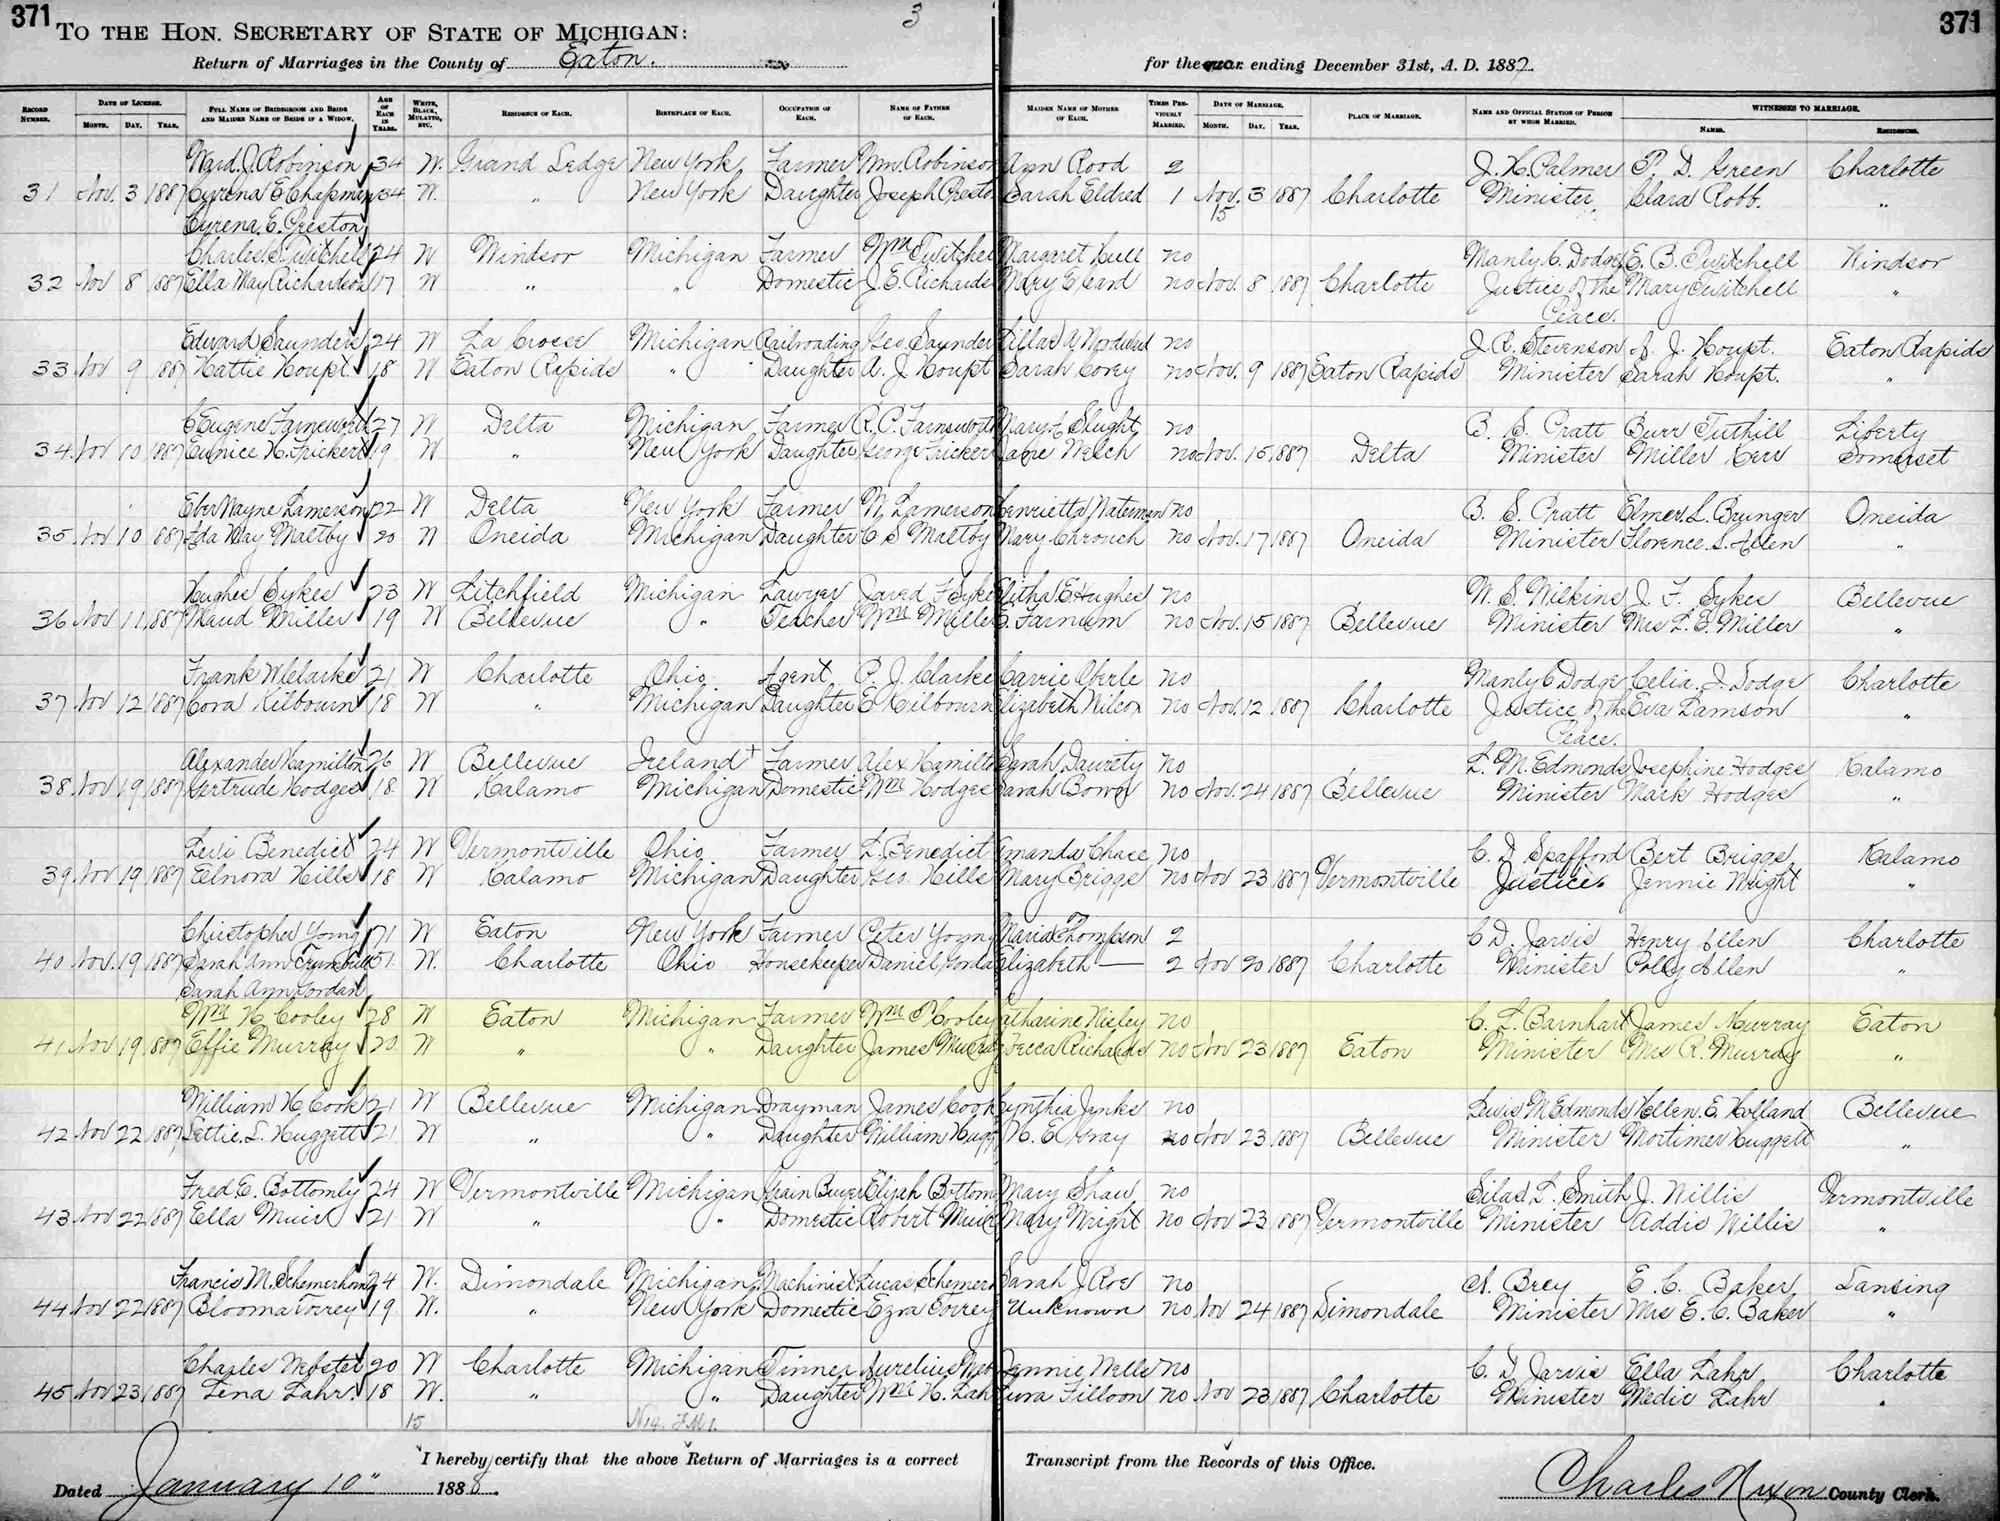 371
371
3
TO THE HON. SECRETARY OF STATE OF MICHIGAN:
Return of Marriages in the County of Eaton.
for the year ending December 31st, A. D. 1887.
RECORD NUMBER. DATE OF LICENSE. MONTH. DAY. YEAR. FULL NAME OF BRIDEGROOM AND BRIDE AND MAIDEN NAME OF BRIDE IF A WIDOW. AGE OF EACH IN YEARS. WHITE, BLACK, MULATTO, ETC. RESIDENCE OF EACH. BIRTHPLACE OF EACH. OCCUPATION OF EACH. NAME OF FATHER OF EACH. MAIDEN NAME OF MOTHER OF EACH. TIMES PREVIOUSLY MARRIED. DATE OF MARRIAGE. MONTH. DAY. YEAR. PLACE OF MARRIAGE. NAME AND OFFICIAL STATION OF PERSON BY WHOM MARRIED. WITNESSES TO MARRIAGE. NAMES. RESIDENCES.
Ward. J. Robinson 34 W. Grand Ledge New York Farmer Wm. Robinson Ann Rood 2 J. H. Palmer P. D. Green Charlotte
31 Nov. 3 1887 Cyrena E Chapman 34 W. " New York Daughter Joseph Presto Sarah Eldred 1 Nov. 3 1887 Charlotte Minister Clara Robb. "
Cyrena. E. Preston 15
Charles S. Twitchell 24 W Windsor Michigan Farmer Wm Twitchel Margaret Hull no Manly C. Dodge E. B. Twitchell Windsor
32 Nov 8 1887 Ella May Richardson 17 W " " Domestic J. E. Richards Mary E Card no Nov. 8 1887 Charlotte Justice of the Mary Twitchell "
Peace.
Edward Saunders 24 W La Crosse Michigan Railroading Geo Saunder no J. R. Stevenson J. Houpt. Eaton Rapids
33 Nov 9 1887 Hattie Houpt. 18 W Eaton Rapids " Daughter A. J. Houpt Sarah Corey no Nov. 9 1887 Eaton Rapids Minister Sarah Houpt. "
C Eugene Farnsworth 27 W Delta Michigan Farmer R. P. Farnsworth Mary Slught no B. S. Pratt Burr Tuthill Liberty
34 Nov 10 1887 Eunice H. Fricker 19 W " New York Daughter George Fricker Jane Welch no Nov. 15 1887 Delta Minister Miller Kerr Somerset
Eber Wayne Lamerson 22 W Delta New York Farmer W. Lamerson Henrietta Waterman no B. S. Pratt Elmer. L. Brunger Oneida
35 Nov 10 1887 Ida May Maltby 20 W Oneida Michigan Daughter C S Maltby Mary Chrouch no Nov. 17 1887 Oneida Minister Florence. S. Allen "
Hughes Sykes 23 W Litchfield Michigan Lawyer Jared F Syke Elitha E. Hughes no W. S. Wilkins J. F. Sykes Bellevue
36 Nov 11 1887 Maud Miller 19 W Bellevue " Teacher Wm Mille Farnum no Nov. 15 1887 Bellevue Minister Mrs L. E. Miller "
Frank W Clarke 21 W Charlotte Ohio Agent P. J. Clarke Carrie Oberle no Manly C Dodge Celia. J. Dodge Charlotte
37 Nov 12 1887 Cora Kilbourn 18 W " Michigan Daughter E Kilbourn Elizabeth Wilcox no Nov. 12 1887 Charlotte Justice of the Eva Lamson "
Peace.
Alexander Hamilton 26 W Bellevue Ireland Farmer Alex Hamilto Sarah Dawrety no L. M. Edmonds Josephine Hodges Kalamo
38 Nov 19 1887 Gertrude Hodges 18 W Kalamo Michigan Domestic Wm Hodges Sarah Bower no Nov. 24 1887 Bellevue Minister Mark Hodges "
Levi Benedict 24 W Vermontville Ohio Farmer L. Benedict Amanda Chace no C. D Spafford Bert Briggs Kalamo
39 Nov 19 1887 Eelnora Hills 18 W Kalamo Michigan Daughter Geo. Hills Mary Briggs no Nov 23 1887 Vermontville Justice. Jennie Wright "
Christopher Young 71 W Eaton New York Farmer Peter Young Maria Thompson 2 C D. Jarvis Henry Allen Charlotte
40 Nov. 19 1887 Sarah Ann Trumbull 51 W. Charlotte Ohio Housekeeper Daniel Elizabeth — 2 Nov 20 1887 Charlotte Minister Polly Allen "
Sarah Ann Jordan
Wm H Cooley 28 W Eaton Michigan Farmer Wm P Cooley Catharine Nisley no C. L. Barnhart James Murray Eaton
41 Nov 19 1887 Effie Murray 20 W " " Daughter James Murray becca Richards no Nov 23 1887 Eaton Minister Mrs R. Murray "
William H Cook 21 W Bellevue Michigan Drayman James Cook Cynthia Jenks no Lewis M Edmonds Hellen. E. Holland Bellevue
42 Nov 22 1887 Lettie. L. Huggett 21 W " " Daughter William Hugg N. E. Gray no Nov 23 1887 Bellevue Minister Mortimer Huggett "
Fred E. Bottomly 24 W Vermontville Michigan Grain Buyer Elijah Bottom Mary Shaw no Silas. L. Smith J. Willis Vermontville
43 Nov 22 1887 Ella Muir 21 W " " Domestic Robert Muir Mary Wright no Nov 23 1887 Vermontville Minister Addie Willis "
Francis M. Schemerhorn 24 W. Dimondale Michigan Machinist Lucas Schemer Sarah J Roe no A. Brey E. C. Baker Lansing
44 Nov 22 1887 Blooma Torrey 19 W. " New York Domestic Ezra Torrey Unknown no Nov 24 1887 Dimondale Minister Mrs E. C. Baker "
Charles Webster 20 W Charlotte Michigan Tinner Aurelius Web Jennie Wells no C. D Jarvis Ella Lahr Charlotte
45 Nov 23 1887 Lena Lahr. 18 W. " " Daughter Wm H. Lah Filloon no Nov 23 1887 Charlotte Minister Medie Lahr "
15
I hereby certify that the above Return of Marriages is a correct Transcript from the Records of this Office.
Dated January 10" 1888.
Charles Nixon County Clerk.